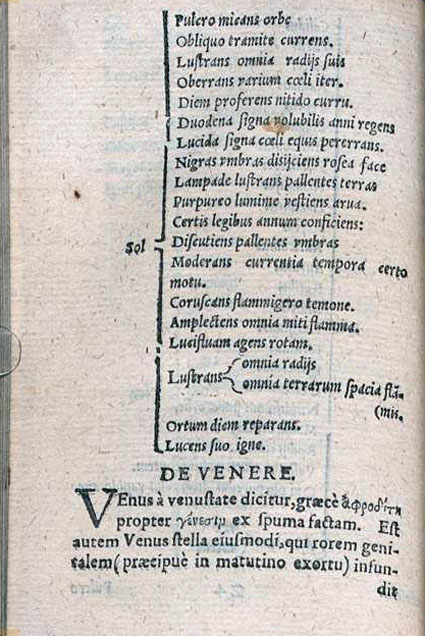 Pulcro micans orbe
Obliquo tramite currens.
Lustrans omnia radijs suis
Oberrans varium cœli iter.
Diem proferens nitido curru.
Duodena signa volubilis anni regens
Lucida signa cœli equis pererrans.
Nigras vmbras disijciens rosea face
Lampade lustrans pallentes terras
Purpureo lumine vestiens arua.
Certis legibus annum conficiens:
Sol Discutiens pallentes vmbras
Moderans currentia tempora certo
motu.
Coruscans flammigero temone.
Amplectens omnia miti flamma.
Lucifluam agens rotam.
omnia radijs
Lustrans
omnia terrarum spacia flā-
(mis.
Ortum diem reparans.
Lucens suo igne.
DE VENERE.
VEnus à venustate dicitur, græcè ἀφροδίτη
propter γένεσιμ ex spuma factam. Est
autem Venus stella eiusmodi, qui rorem geni-
talem (præcipuè in matutino exortu) infun-
dit